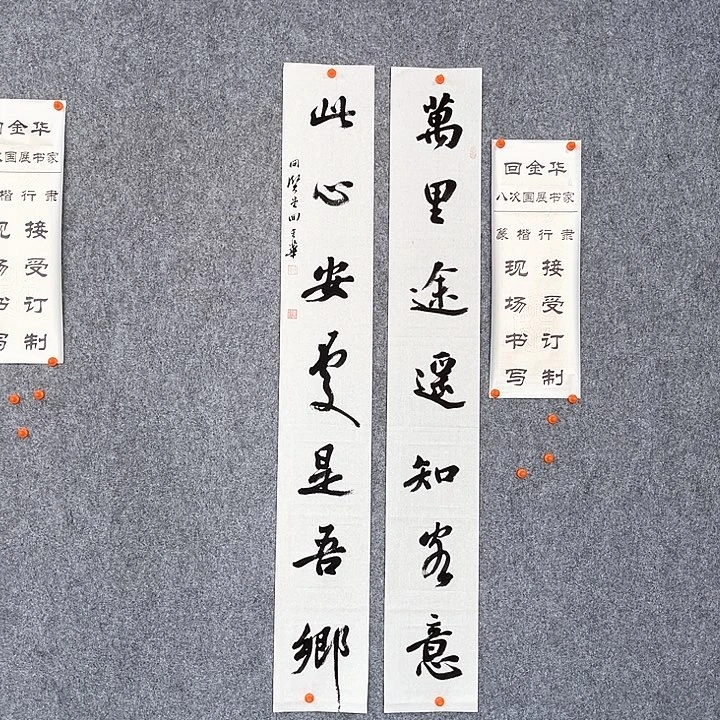 萬里途遥知客意
此心安處是吾鄉
回金华
八次国展书家
篆楷行隶
现场书写
接受订制
金华
国展书家
楷行隶
接受订制